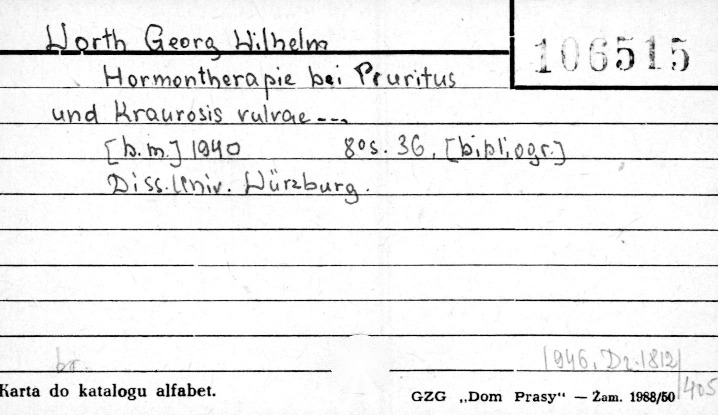 Worth Georg Wilhelm
106515
Hormontherapie bei Pruritus
und Kraurosis vulvae ---
[b.m.] 1940 8os. 36, [bibliogr.]
Diss. Univ. Würzburg.
br. 1946, Dz. 1812/405
Karta do katalogu alfabet. GZG „Dom Prasy“ — Zam. 1988/50